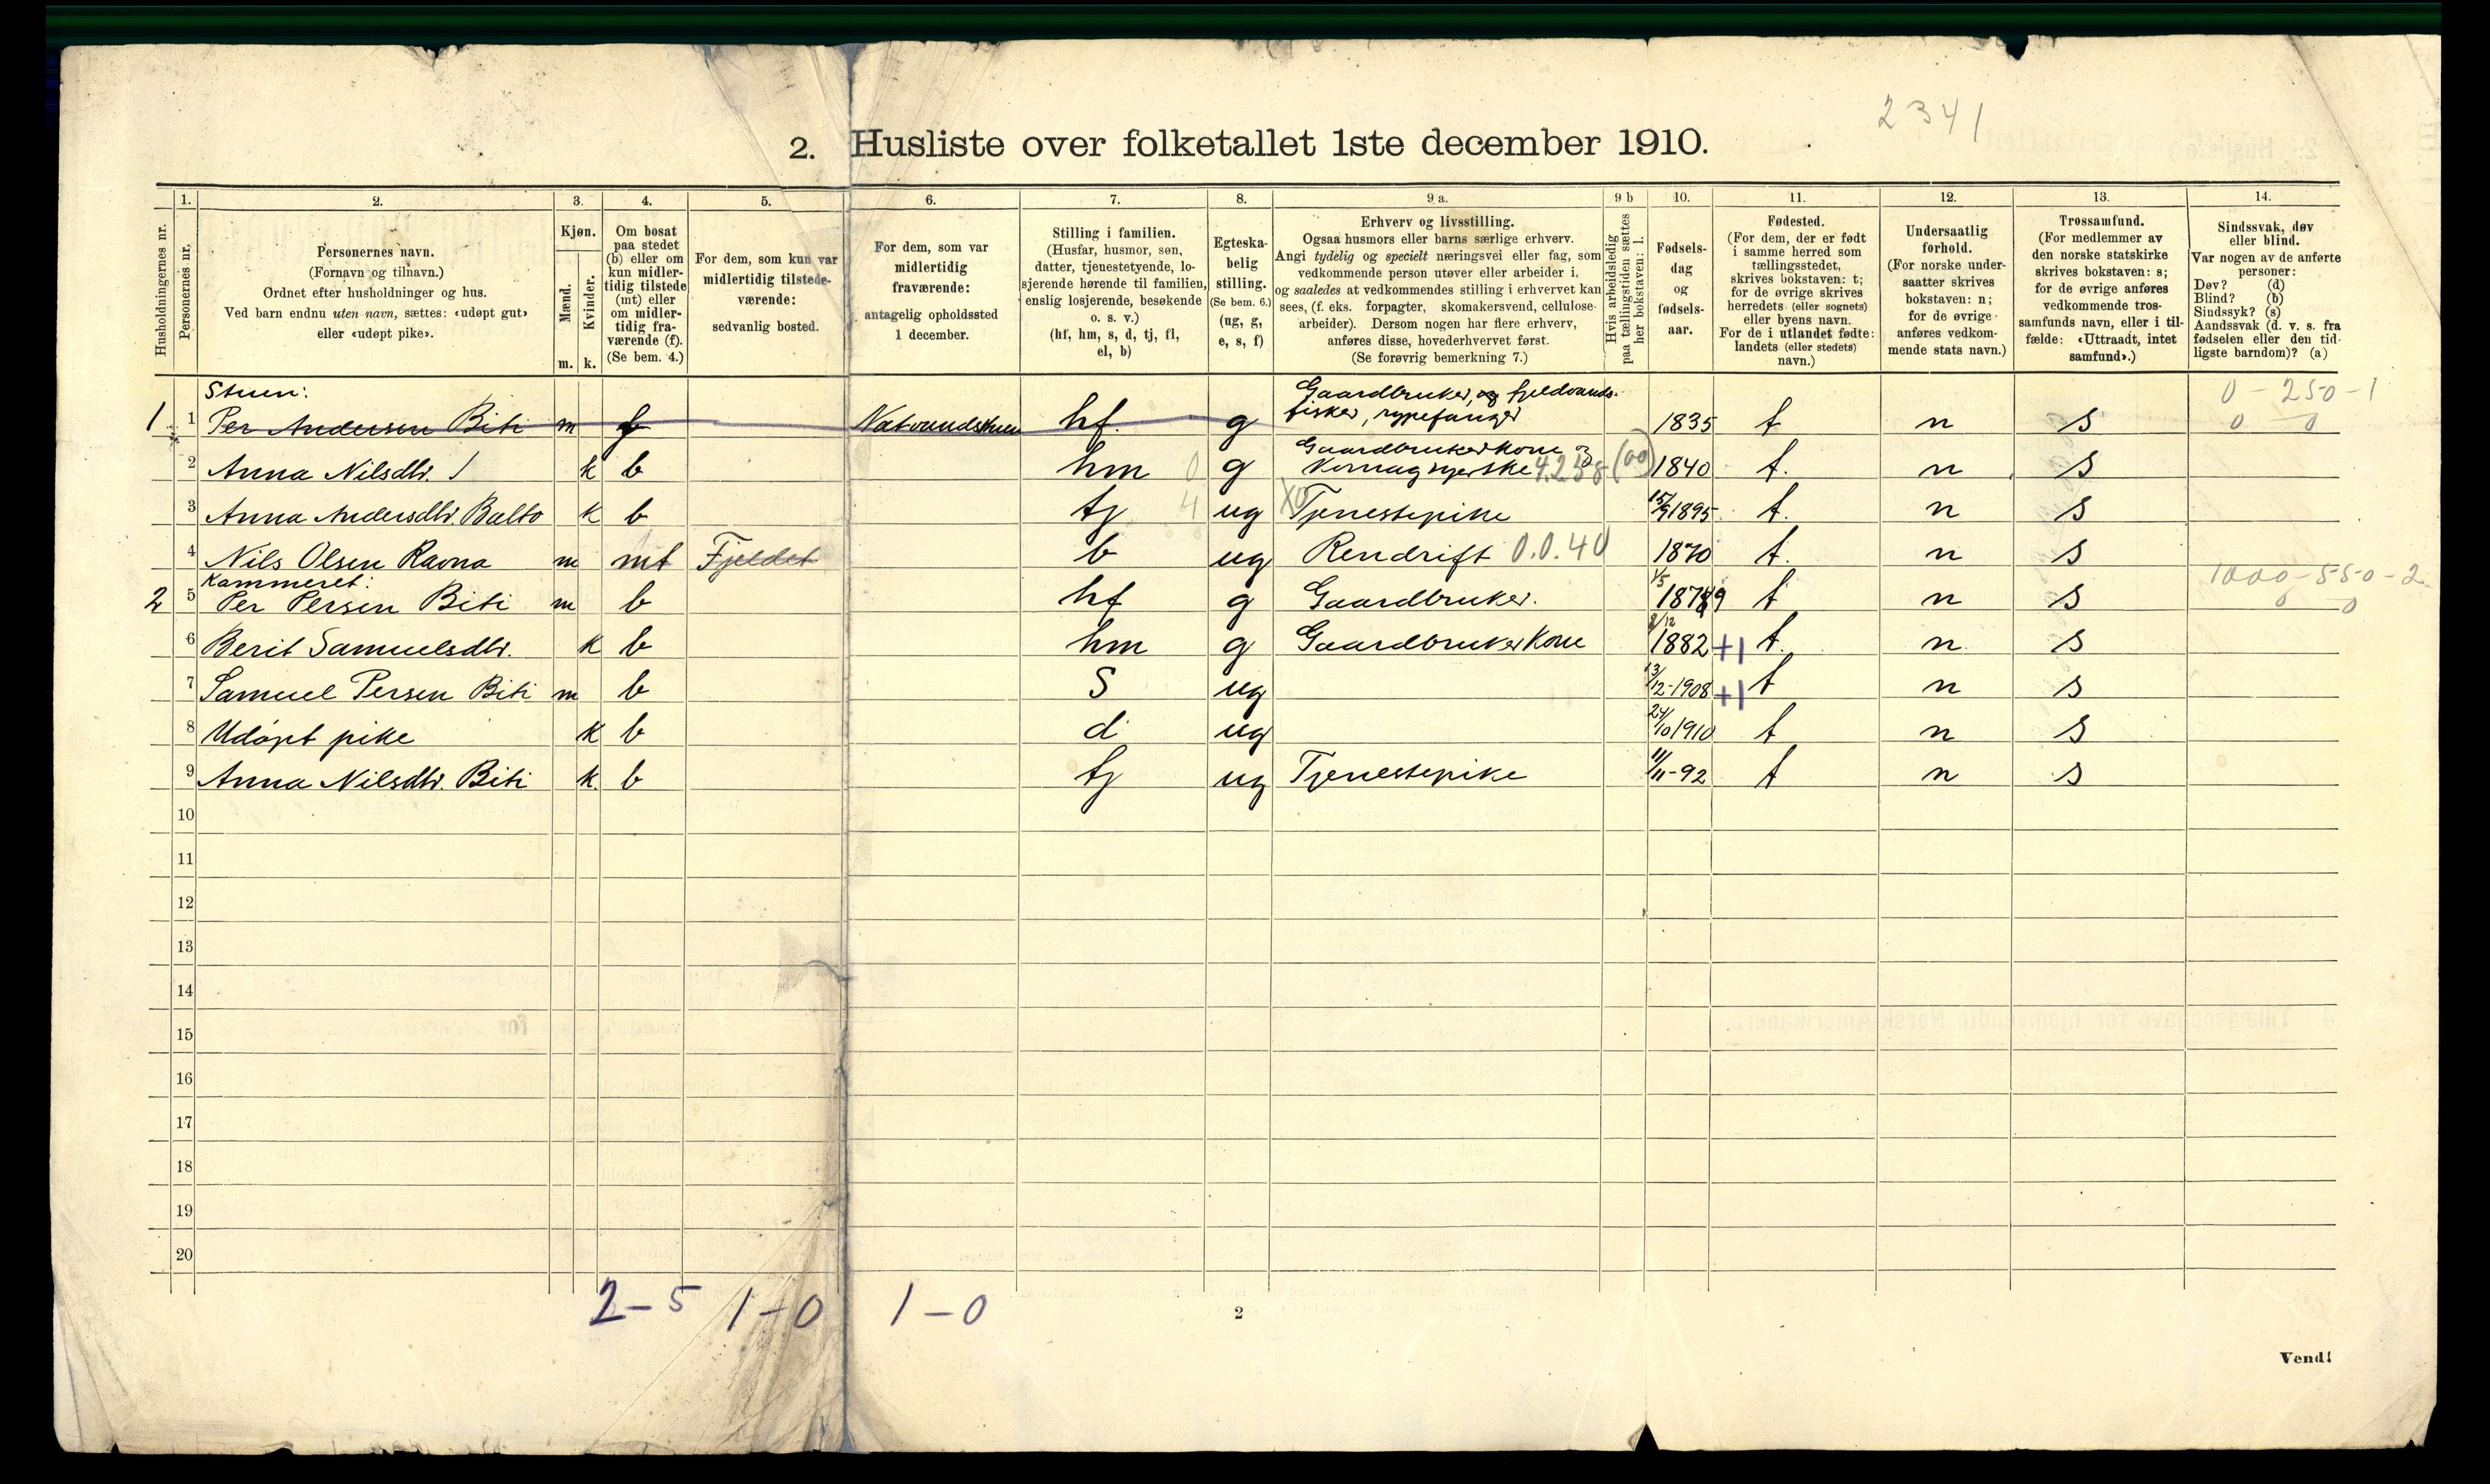 2341
2. Husliste over folketallet 1ste december 1910.
Husholdningernes nr.
1.
Personernes nr.
2.
Personernes navn.
(Fornavn og tilnavn.)
Ordnet efter husholdninger og hus.
Ved barn endnu uten navn, sættes: «udøpt gut»
eller «udøpt pike».
3.
Kjøn.
Mænd.
m.
Kvinder.
k.
4.
Om bosat
paa stedet
(b) eller om
kun midler-
tidig tilstede
(mt) eller
om midler-
tidig fra-
værende (f).
(Se bem. 4.)
5.
For dem, som kun var
midlertidig tilstede-
værende:
sedvanlig bosted.
6.
For dem, som var
midlertidig
fraværende:
antagelig opholdssted
1 december.
7.
Stilling i familien.
(Husfar, husmor, søn,
datter, tjenestetyende, lo-
sjerende hørende til familien,
enslig losjerende, besøkende
o. s. v.)
(hf, hm, s, d, tj, fl,
el, b)
8.
Egteska-
belig
stilling.
(Se bem. 6.)
(ug, g,
e, s, f)
9 a.
Erhverv og livsstilling.
Ogsaa husmors eller barns særlige erhverv.
Angi tydelig og specielt næringsvei eller fag, som
vedkommende person utøver eller arbeider i,
og saaledes at vedkommendes stilling i erhvervet kan
sees, (f. eks. forpagter, skomakersvend, cellulose-
arbeider). Dersom nogen har flere erhverv,
anføres disse, hovederhvervet først.
(Se forøvrig bemerkning 7.)
9 b
Hvis arbeidsledig
paa tællingstiden sættes
her bokstaven: l.
10.
Fødsels-
dag
og
fødsels-
aar.
11.
Fødested.
(For dem, der er født
i samme herred som
tællingsstedet,
skrives bokstaven: t;
for de øvrige skrives
herredets (eller sognets)
eller byens navn.
For de i utlandet fødte:
landets (eller stedets)
navn.)
12.
Undersaatlig
forhold.
(For norske under-
saatter skrives
bokstaven: n;
for de øvrige
anføres vedkom-
mende stats navn.)
13.
Trossamfund.
(For medlemmer av
den norske statskirke
skrives bokstaven: s;
for de øvrige anføres
vedkommende tros-
samfunds navn, eller i til-
fælde: «Uttraadt, intet
samfund».)
14.
Sindssvak, døv
eller blind.
Var nogen av de anførte
personer:
Døv? (d)
Blind? (b)
Sindssyk? (s)
Aandssvak (d. v. s. fra
fødselen eller den tid-
ligste barndom)? (a)
Stuen: Gaardbruker, og fjeldvands- 0 - 250 - 1
1 1 Per Andersen Biti m f hf. g fisker, rypefanger 1835 t n s 0 0
Gaardbrukerkone og
2 Anna Nilsdtr. k b hm 0 g 4.258 (00) 1840 t. n s
3 Anna Andersdtr. Balto k b tj 4 ug Tjenestepike 15/9 1895 t. n s
4 Nils Olsen Ravna m mt Fjeldet b ug Rendrift 0.0.40 1870 t. n s
Kammeret: 1000 - 550 - 2
2 5 Per Persen Biti m b hf g Gaardbruker. 1/5 1879 t n s 0 0
6 Berit Samuelsdtr. k b hm g Gaardbrukerkone 8/12 1882 +1 t. n s
7 Samuel Persen Biti m b S ug 13/12-1908 +1 t n s
8 Udøpt pike k b d ug 24/10 1910 t n s
9 Anna Nilsdtr. Biti k. b tj ug Tjenestepike 11/11-92 t n s
10
11
12
13
14
15
16
17
18
19
20
2 - 5 1 - 0 1 - 0
2
Vend!